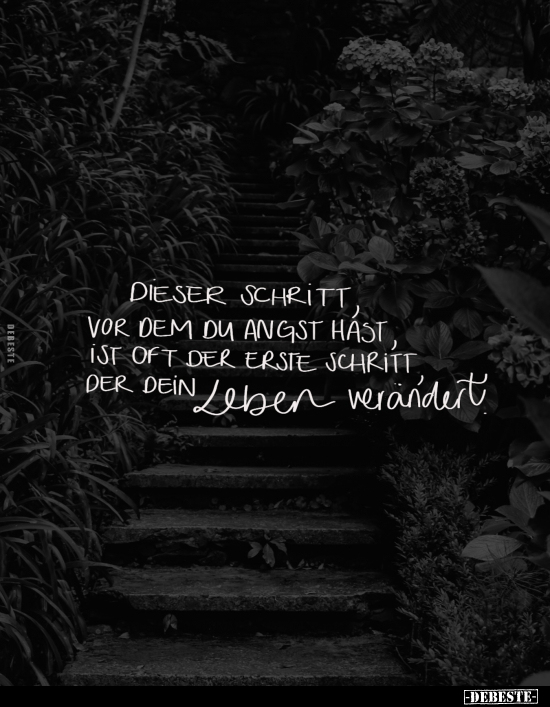 DIESER SCHRITT,
VOR DEM DU ANGST HAST,
IST OFT DER ERSTE SCHRITT,
DER DEIN Leben verändert.
DEBESTE
-DEBESTE-